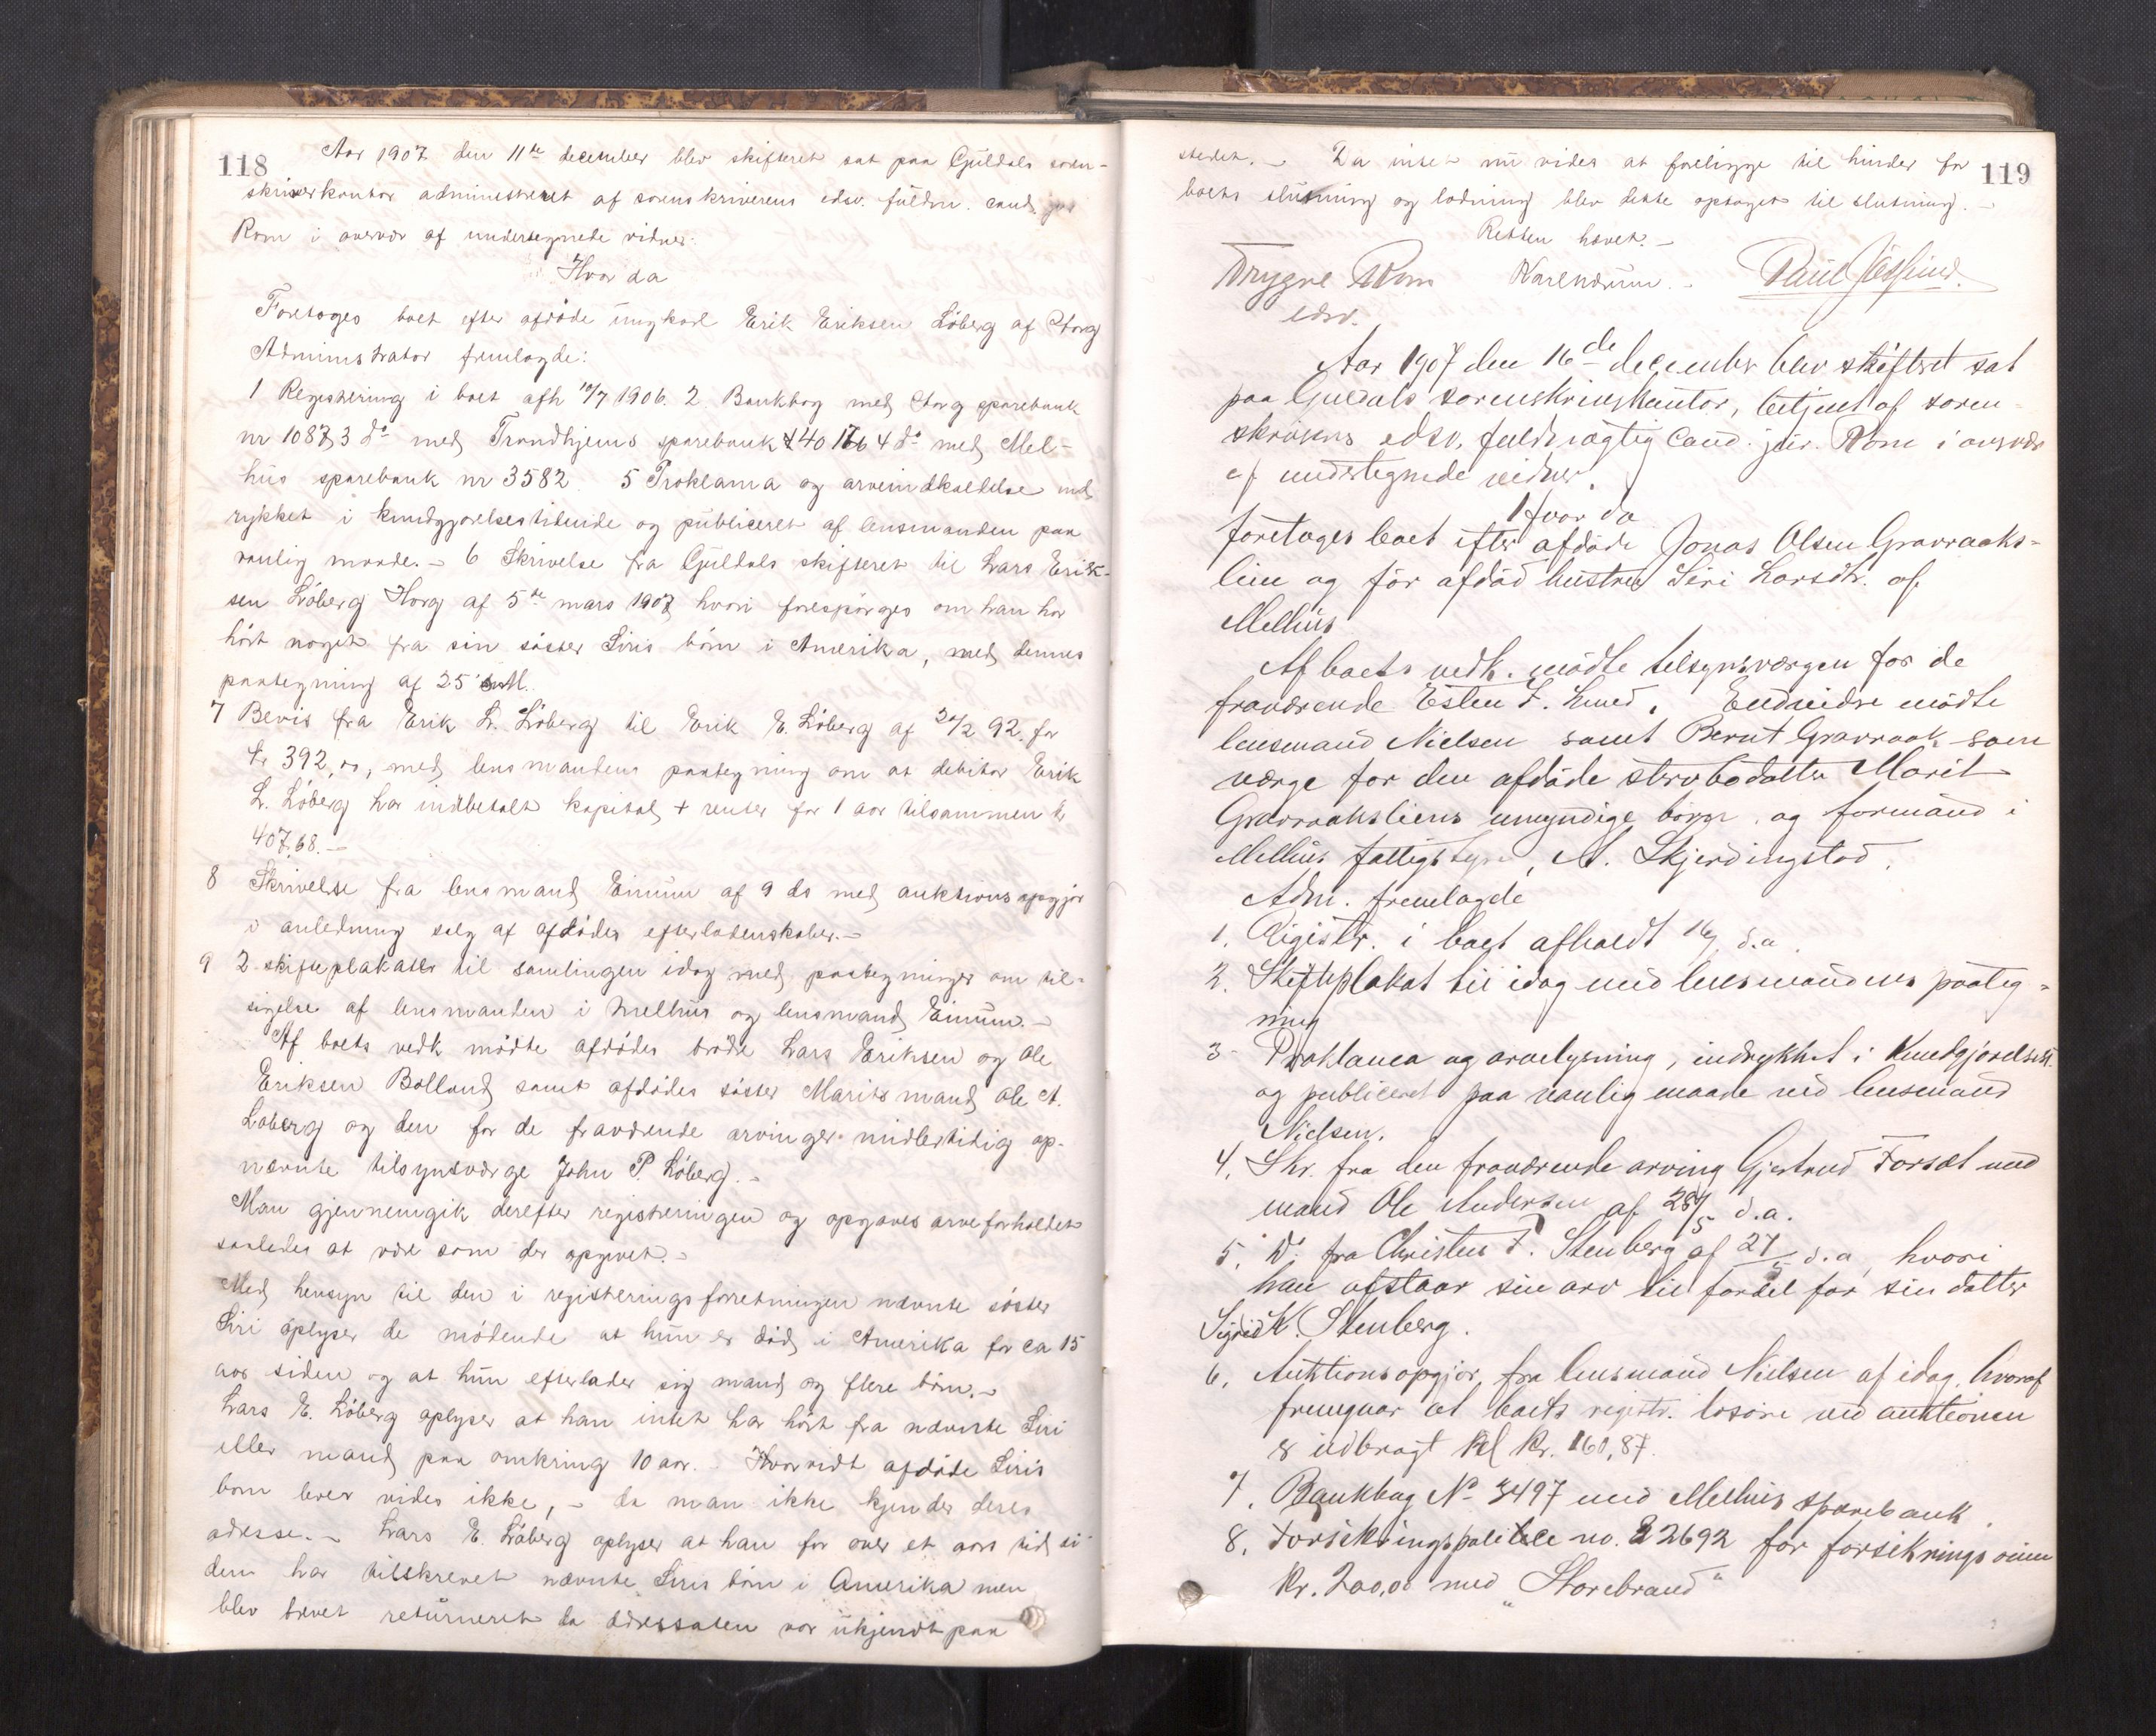 118
Aar 1907 den 11te december blev skifteret sat paa Guldals soren-
skriverkontor administreret af sorenskriverens edsv. fuldm. cand. jur
Rom i overvær af undertegnede vidner.
Hvor da
Foretoges boet efter afdøde ungkarl Erik Eriksen Løberg af Horg
Administrator fremlagde:
1 Registrering i boet afh 10/7 1906. 2 Bankbog med Horg sparebank
nr 1087, 3 do med Trondhjems sparebank 4 do med Mel-
hus sparebank nr 3582. 5 Proklama og arveindkaldelse ind-
rykket i kundgjørelsestidende og publiceret af lensmanden paa
vanlig maade. - 6 Skrivelse fra Guldals skifteret til Lars Erik-
sen Løberg Horg af 5te mars 1907 hvori forespørges om han har
hørt noget fra sin søster Siris børn i Amerika, med dennes
paategning af 25 s. M.
7 Bevis fra Erik L. Løberg til Erik E. Løberg af 92 for
kr 392,00, med lensmandens paategning om at debitor Erik
L. Løberg har indbetalt kapital + renter for 1 aar tilsammen kr
407,68. -
8 Skrivelse fra lensmand Einum af 9 ds med auktionsopgjør
i anledning salg af afdødes efterladenskaber. -
9 2 skifteplakater til samlingen idag med paategninger om til-
sigelse af lensmanden i Melhus og lensmand Einum. -
Af boets vedk mødte afdødes brødre Lars Eriksen og Ole
Eriksen Bolland samt afdødes søster Marits mand Ole A.
Løberg og den for de fraværende arvinger midlertidig op-
nævnte tilsynsværge John P. Løberg. -
Man gjennemgik derefter registreringen og opgaves arveforholdet
saaledes at være som der opgivet. -
Med hensyn til den i registreringsforretningen nævnte søster
Siri oplyser de mødende at hun er død i Amerika for ca 15
aar siden og at hun efterlader sig mand og flere børn. -
Lars E. Løberg oplyser at han intet har hørt fra nævnte Siri
eller mand paa omkring 10 aar. - Hvorvidt afdøde Siris
børn lever vides ikke, - da man ikke kjender deres
adresse. - Lars E. Løberg oplyser at han for over et aars tid si-
den har tilskrevet nævnte Siris børn i Amerika men
blev brevet returneret da adressaten var ukjendt paa
119
stedet. - Da intet nu vides at foreligge til hinder for
boets slutning og lodning blev dette optaget til slutning. -
Retten hævet. -
Trygve Rom
edsv.
Aar 1907 den 16de december blev skifteret sat
paa Guldals sorenskriverkontor, betjent af soren-
skriverens edsv. fuldmægtig cand. jur. Rom i overvær
af undertegnede vidner.
Hvor da
foretoges boet efter afdøde Jonas Olsen Gravraaks-
lien og før afdød hustru Siri Larsdtr. af
Melhus
Af boets vedk. mødte tilsynsværgen for de
fraværende Esten F. Lund. Endvidere mødte
lensmand Nielsen samt Bernt Gravraak som
værge for den afdøde stervbodatter Marit
Gravraakliens umyndige børn og formand i
Melhus fattigstyre, A. Skjerdingstad.
Adm. fremlagde
1. Registr. i boet afholdt d.a.
2. Skifteplakat til idag med lensmandens paateg-
ning
3 - Proklama og arvelysning, indrykket i Kundgjørelsest.
og publiceret paa vanlig maade ved lensmand
Nielsen.
4. Skr. fra den fraværende arving Gjertrud Forsæt med
mand Ole Andersen af 28/5 d.a.
5. Do fra Christen F. Stenberg af 27/5 d.a., hvori
han afstaar sin arv til fordel for sin datter
Sigrid K. Stenberg.
6. Auktionsopgjør fra lensmand Nielsen af idag, hvoraf
fremgaar at boets registr. løsøre ved auktionen
er udbragt til kr. 160,87.
7. Bankbog No 3497 med Melhus sparebank.
8. Forsikringspolice no. 22692 for forsikringssum
kr. 200,00 med "Storebrand"